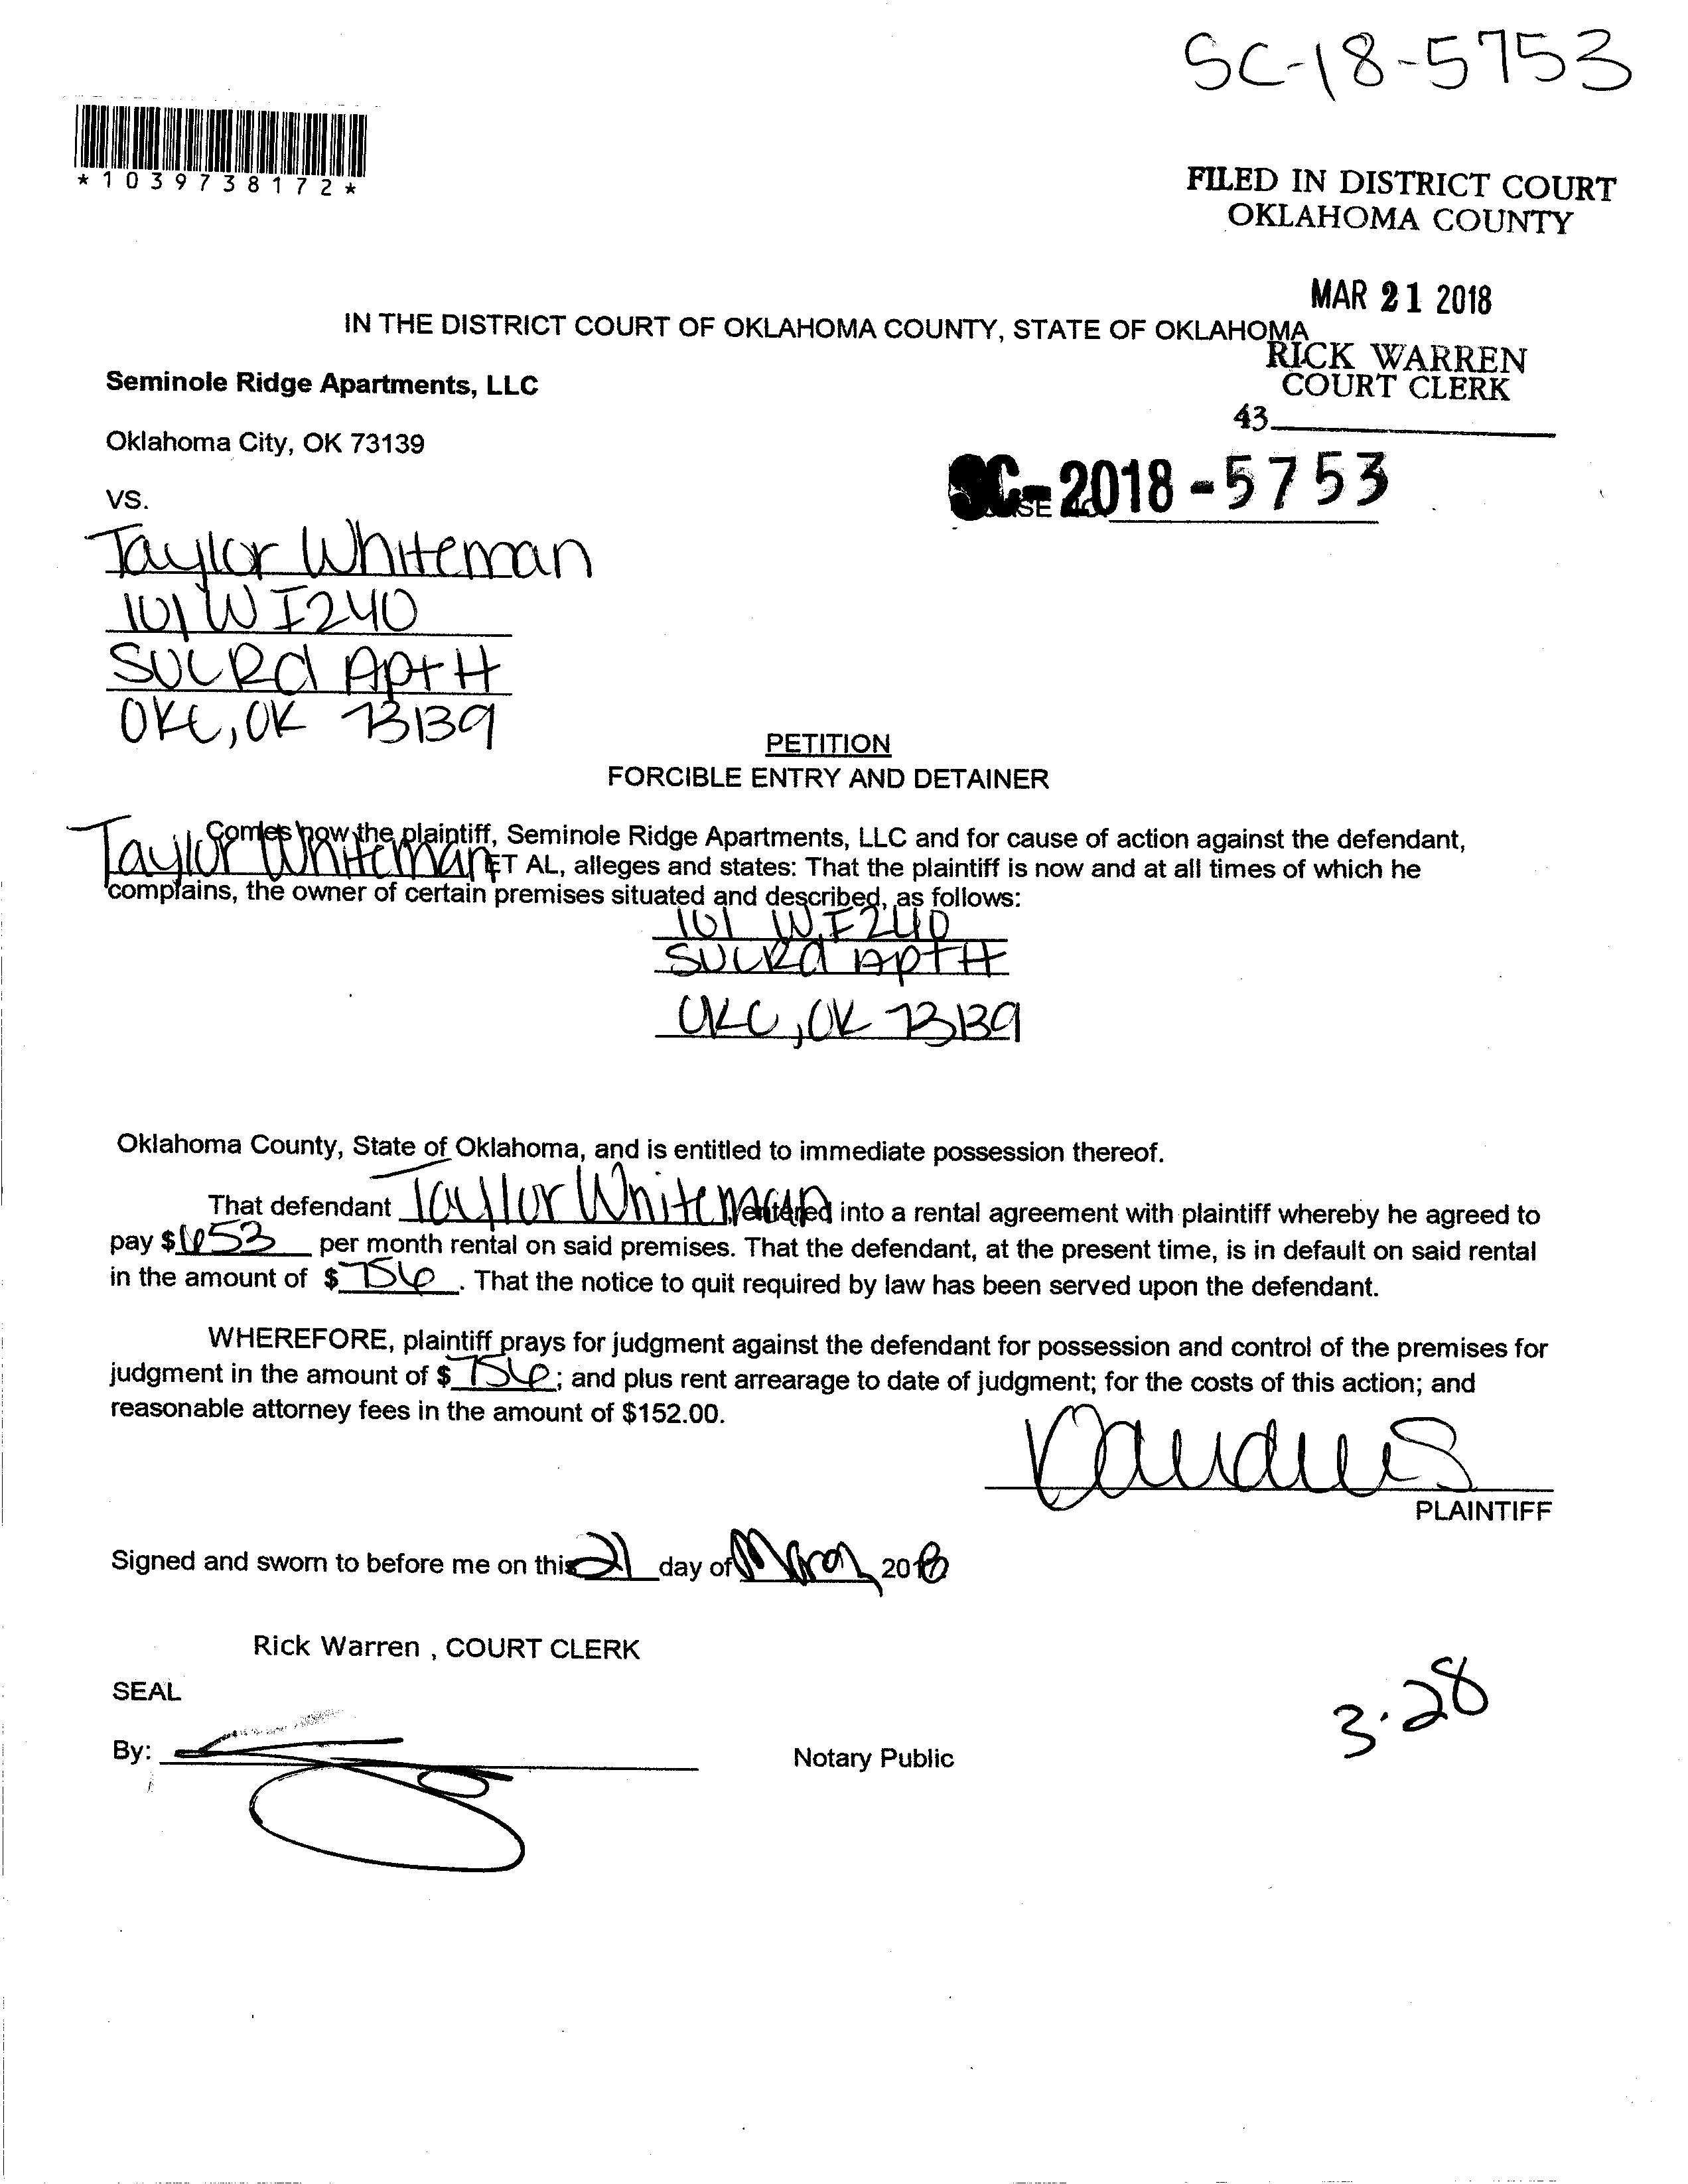 SC-18-5753
*1039738172*
FILED IN DISTRICT COURT
OKLAHOMA COUNTY
MAR 21 2018
IN THE DISTRICT COURT OF OKLAHOMA COUNTY, STATE OF OKLAHOMA
RICK WARREN
COURT CLERK
43
Seminole Ridge Apartments, LLC
Oklahoma City, OK 73139
SC-2018-5753
VS.
Taylor Whiteman
101 W I240
SVC Rd Apt H
OKC, OK 73139
PETITION
FORCIBLE ENTRY AND DETAINER
Comes now the plaintiff, Seminole Ridge Apartments, LLC and for cause of action against the defendant,
Taylor Whiteman ET AL, alleges and states: That the plaintiff is now and at all times of which he
complains, the owner of certain premises situated and described, as follows:
101 W I240
SVC Rd Apt H
OKC, OK 73139
Oklahoma County, State of Oklahoma, and is entitled to immediate possession thereof.
That defendant Taylor Whiteman, entered into a rental agreement with plaintiff whereby he agreed to
pay $653 per month rental on said premises. That the defendant, at the present time, is in default on said rental
in the amount of $756. That the notice to quit required by law has been served upon the defendant.
WHEREFORE, plaintiff prays for judgment against the defendant for possession and control of the premises for
judgment in the amount of $756; and plus rent arrearage to date of judgment; for the costs of this action; and
reasonable attorney fees in the amount of $152.00.
PLAINTIFF
Signed and sworn to before me on this 21 day of March 2018
Rick Warren , COURT CLERK
SEAL
3.28
By:
Notary Public